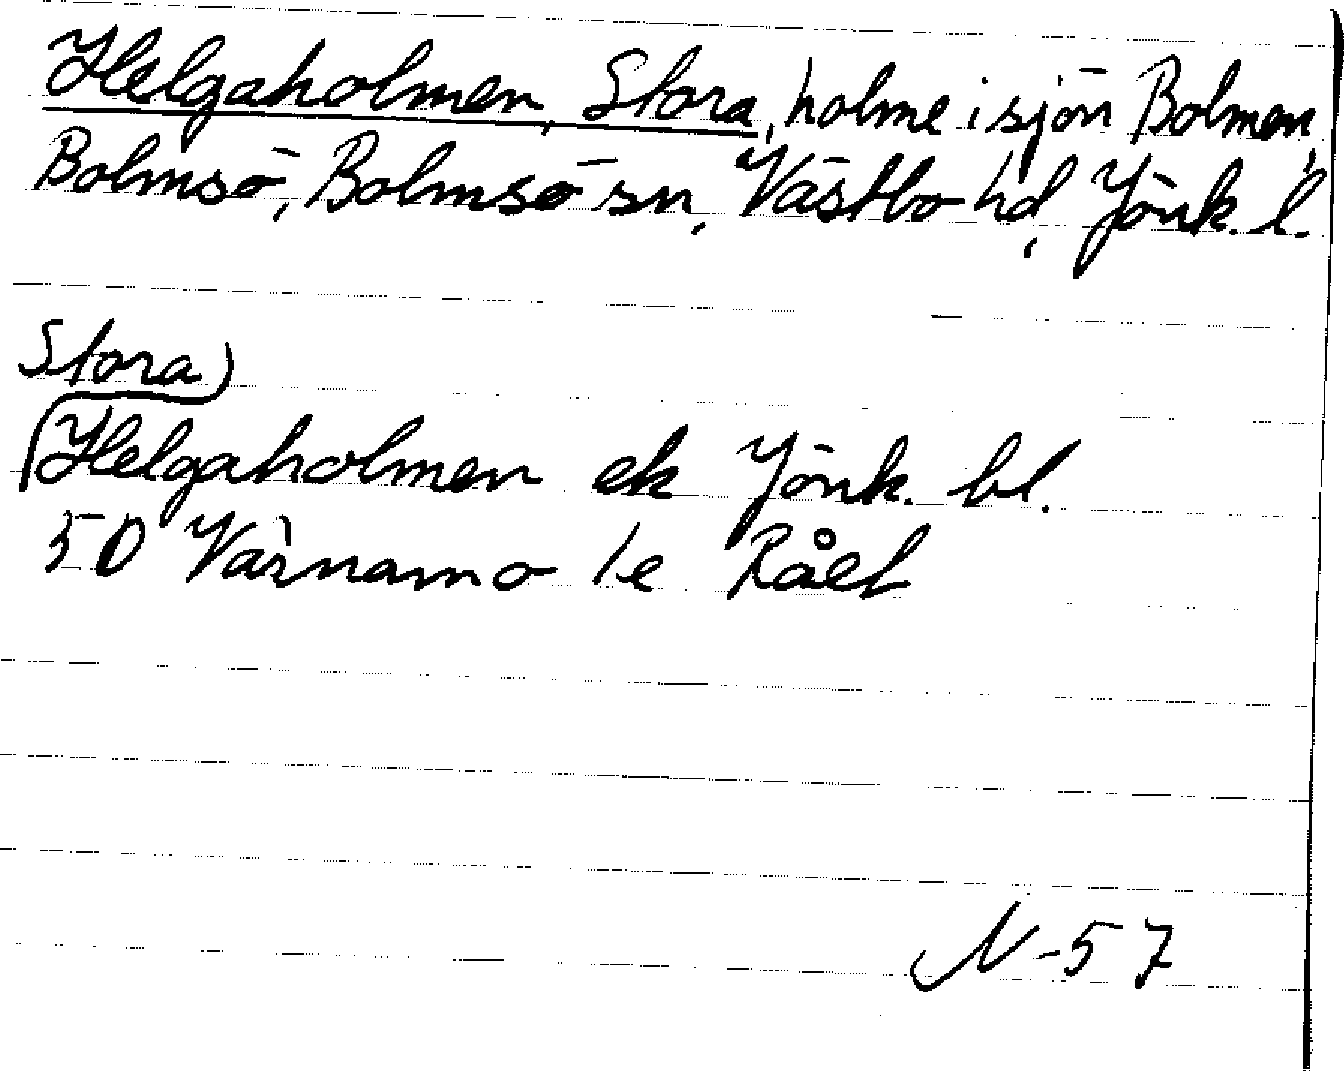 Helgaholmen, Stora, holme i sjön Bolmen,
Bolmsö, Bolmsö sn, Västbo hd, Jönk. l.
Stora)
(Helgaholmen ek Jönk. bl.
50 Värnamo 1e Råel
N-57